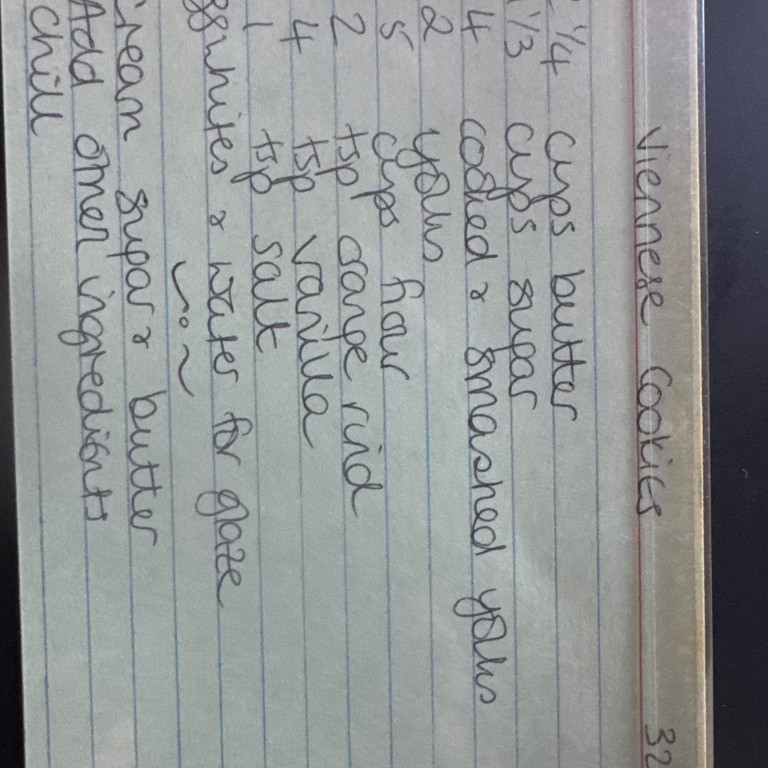 Viennese Cookies 32
1/4 cups butter
1 1/3 cups sugar
4 cooked & smashed yolks
2 yolks
5 cups flour
2 tsp orange rind
4 tsp vanilla
1 tsp salt
ggwhites & water for glaze
Cream sugar & butter
Add other ingredients
chill